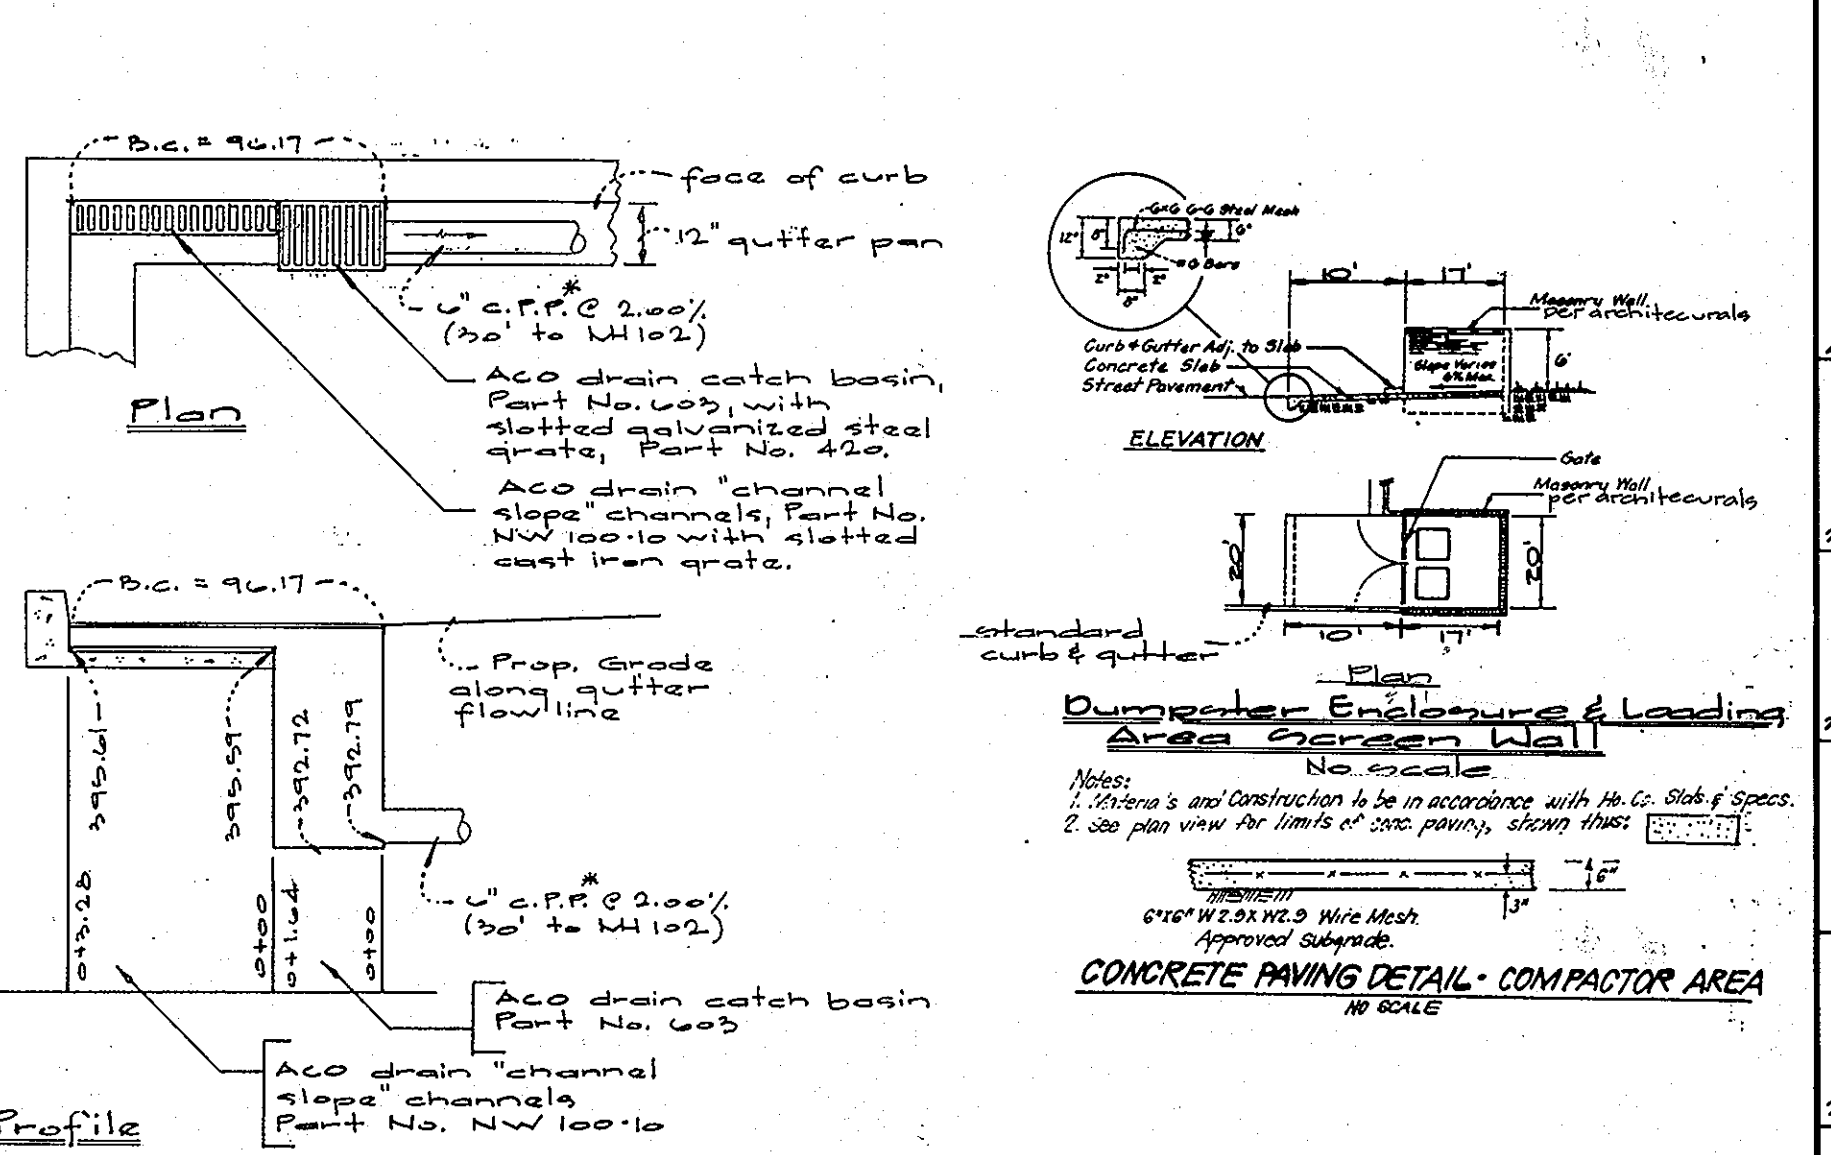 B.C. = 96.17
face of curb
12" gutter pan
6" C.P.P.* @ 2.00%
(30' to MH 102)
ACO drain catch basin,
Part No. 603, with
slotted galvanized steel
grate, Part No. 420.
Plan
ACO drain "channel
slope" channels, Part No.
NW 100·10 with slotted
cast iron grate.
B.C. = 96.17
Prop. Grade
along gutter
flow line
395.61
395.59
392.72
392.79
6" C.P.P.* @ 2.00%
(30' to MH 102)
0+3.28
0+00
0+1.64
0+00
ACO drain catch basin
Part No. 603
ACO drain "channel
slope" channels
Part No. NW 100·10
Profile
6x6 6-6 Steel Mesh
12"
8"
6"
#6 Bars
2"
2"
8"
10'
17'
Masonry Wall
per architecurals
Curb & Gutter Adj. to Slab
Concrete Slab
Street Pavement
Slope Varies
6% Max.
6'
ELEVATION
Gate
Masonry Wall
per architecurals
20'
20'
standard
curb & gutter
10'
17'
Plan
Dumpster Enclosure & Loading
Area Screen Wall
No scale
Notes:
1. Materia's and Construction to be in accordance with Ho. Co. Stds. & Specs.
2. See plan view for limits of conc. paving, shown thus:
6"
3"
6"x6" W2.9xW2.9 Wire Mesh.
Approved Subgrade.
CONCRETE PAVING DETAIL - COMPACTOR AREA
NO SCALE